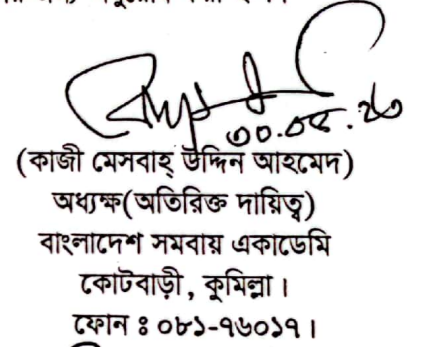 ৩০.০৪.২৩
(কাজী মেসবাহ্ উদ্দিন আহমেদ)
অধ্যক্ষ(অতিরিক্ত দায়িত্ব)
বাংলাদেশ সমবায় একাডেমি
কোটবাড়ী, কুমিল্লা।
ফোন ঃ ০৮১-৭৬০১৭।